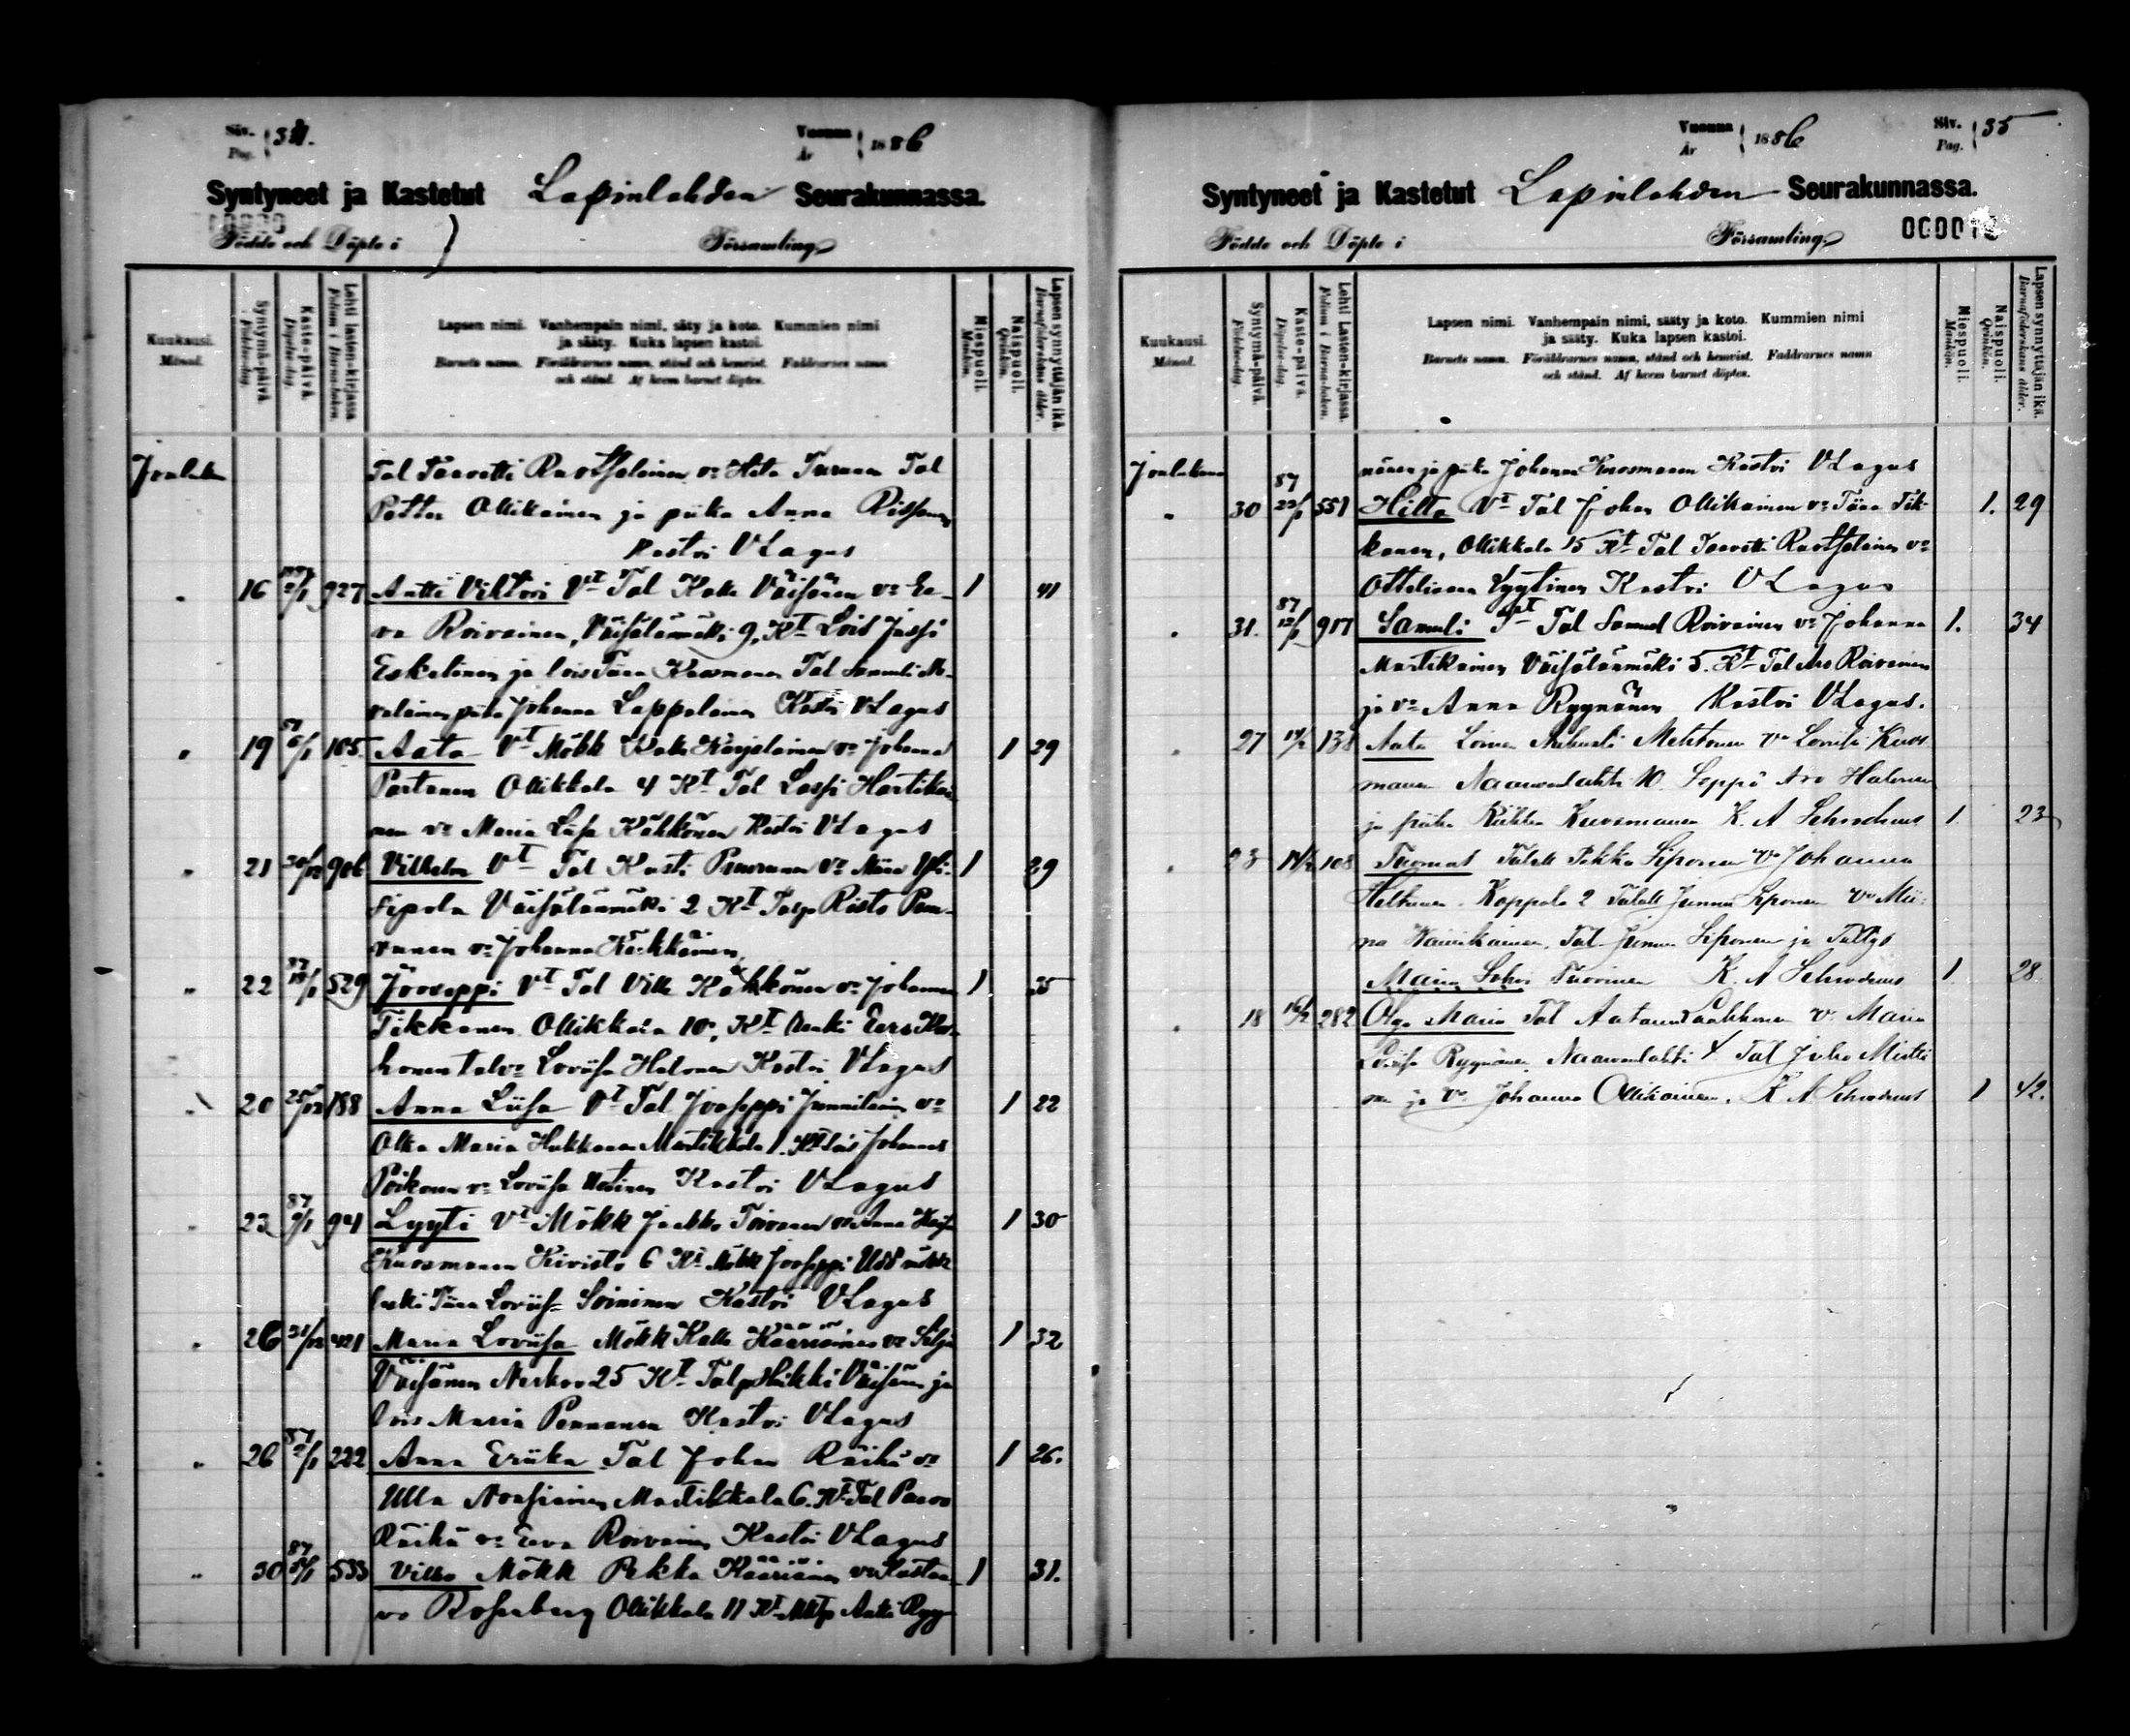 Siv. Pag. 34.
Vuonna År 1886
Syntyneet ja Kastetut Lapinlahden Seurakunnassa.
Födde och Döpte i Församling
Kuukausi. Månad.
Syntymä-päivä. Födelse-dag.
Kaste-päivä. Döpelse-dag.
Lehti lasten-kirjassa Folium i Barna-boken.
Lapsen nimi. Vanhempain nimi, sääty ja koto. Kummien nimi
ja sääty. Kuka lapsen kastoi.
Barnets namn. Föräldrarnes namn, stånd och hemvist. Faddrarnes namn
och stånd. Af hvem barnet döptes.
Miespuoli. Mankön.
Naispuoli. Qvinkön.
Lapsen synnyttäjän ikä. Barnaföderskans ålder.
Jouluku
Tal Taavetti Ruotsalainen vo Heta Turunen Tal
Petter Ollikainen ja piika Anna Rissanen
Kastoi VLagus
" 16 2/1 927 Antti Viktori Vt Tal Kalle Väisänen vo Ee- 1 41
va Roivainen, Väisälänmäki 9, Kt Lois Jussi
Eskelinen ja lois Tiina Kuosmanen Tal Samuli
piika Johanna Lappalainen Kastoi VLagus
" 19 87 6/1 165 Aata Vt Mökk Kalle Karjalainen vo Johanna 1 29
Partanen Ollikkala 4 Kt Tal Lassi Hartikai
nen vo Maria Liisa Kähkönen Kastoi VLagus
" 21 30/12 906 Vilhelm Vt Tal Kusti Puurunen vo Miina Yli- 1 29
sipola Väisälänmäki 2 Kt Talp Risto Puu-
runen vo Johanna Kärkkäinen
" 22 87 529 Jooseppi Vt Tal Ville Kähkönen vo Johanna 1 35
Tikkanen Ollikkala 10, Kt Eero Kor-
honen talvo Loviisa Halonen Kastoi VLagus
" 20 25/12 188 Anna Liisa Vt Tal Jooseppi vo 1 22
Olka Maria Hukkanen Martikkala 1. Kt Lois Johannes
Poikonen vo Loviisa Kastoi VLagus
" 23 87 941 Lyyti Vt Mökk Jaakko Toivanen vo Anna 1 30
Kuosmanen Kivistö 6 Kt Mökk Jooseppi
leski Tiina Loviisa Soininen Kastoi VLagus
" 26 31/12 421 Maria Loviisa Mökk Kalle Kääriäinen vo Silja 1 32
Väisänen Nerkoo 25 Kt Talp Heikki Väisänen ja
lois Maria Pennanen Kastoi VLagus
" 26 87 2/1 222 Anna Eriika Tal Johan Räihä vo 1 26.
Ulla Martikkala 6. Kt Tal Paavo
Räihä vo Eeva Roivainen Kastoi VLagus
" 30 87 533 Vilho Mökk Pekka Kääriäinen vo Kustaa- 1 31.
va Rosenberg Ollikkala 11 Kt Mkp Antti Ryy-
Vuonna År 1886
Siv. Pag. 35
Syntyneet ja Kastetut Lapinlahden Seurakunnassa.
Födde och Döpte i Församling.
Kuukausi. Månad.
Syntymä-päivä. Födelse-dag.
Kaste-päivä. Döpelse-dag.
Lehti lasten-kirjassa Folium i Barna-boken.
Lapsen nimi. Vanhempain nimi, sääty ja koto. Kummien nimi
ja sääty. Kuka lapsen kastoi.
Barnets namn. Föräldrarnes namn, stånd och hemvist. Faddrarnes namn
och stånd. Af hvem barnet döptes.
Miespuoli. Mankön.
Naispuoli. Qvinkön.
Lapsen synnyttäjän ikä. Barnaföderskans ålder.
Joulukuu
nänen ja piika Johanna Kuosmanen Kastoi VLagus
" 30 87 551 Hilta Vt Tal Johan Ollikainen vo Tiina Tik- 1. 29
kanen, Ollikkala 15 Kt Tal Taavetti Ruotsalainen vo
Ottiliaana Lyytinen Kastoi VLagus
" 31. 87 12/1 917 Samuli Tal Samuel Roivainen vo Johanna 1. 34
Martikainen Väisälänmäki 5. Kt Tal Aro Roivainen
ja vo Anna Ryynänen Kastoi VLagus.
" 27 14/2 138 Aata Loinen Mehtonen vo Loviisa Kuos-
manen Naarvanlahti 10. Seppä Aro Halonen
ja piika Riikka Kuosmanen K. A Schroderus 1. 23
" 23 14/2 108 Tuomas Talall Pekka Siponen vo Johanna
Heltunen. Koppola 2 Talall Junnu Siponen vo Mii-
na Kainikainen, Tal Junnu Siponen ja Taltyt
Maria Sohvi Turvinen K. A Schroderus 1. 28.
" 18 16/2 282 Olga Maria Tal Aatami Laakkonen vo Maria
Loviisa Ryynänen. Naarvanlahti 4. Tal Juho
nen ja vo Johanna Ollikainen. K A Schroderus 1 42.